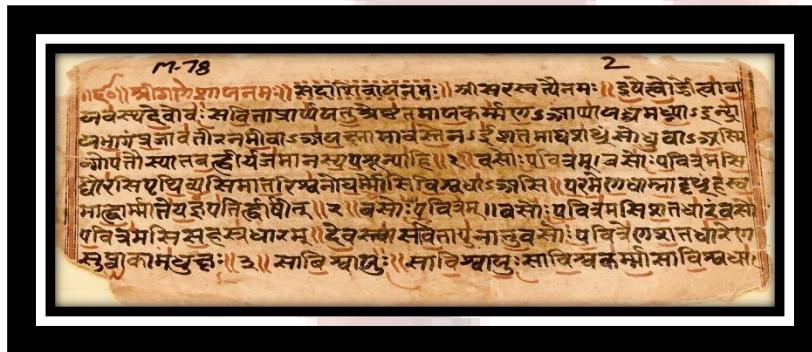 M-78 2
॥६०॥ श्रीगणेशायनमः॥ सदाशिवायनमः॥ श्रीसरस्वत्यैनमः॥ इषेत्वोर्जेत्वावा
यवस्थदेवोवः सविताप्रार्प्पयतुश्रेष्ठतमायकर्म्मणऽआप्यायद्ध्वमघ्न्याऽइन्द्रा
यभागंप्रजावतीरनमीवाऽअयक्ष्मामावस्तेनऽईशतमाघशᳪसोध्रुवाऽअस्मि
न्गोपतौस्यातबह्वीर्यजमानस्यपशून्पाहि॥१॥ वसोःपवित्रम्। वसोःपवित्रमसि
द्यौरसिपृथिव्यसिमातरिश्वनोघर्म्मोसिविश्वधाऽअसि॥ परमेणधाम्नादृᳪहस्व
माह्वार्म्मातेयज्ञपतिर्ह्वार्षीत्॥२॥ वसोःपवित्रम्॥ वसोःपवित्रमसिशतधारंवसोः
पवित्रमसिसहस्रधारम्॥ देवस्त्वासवितापुनातुवसोःपवित्रेणशतधारेण
सुप्वाकामधुक्षः॥३॥ साविश्वायुः॥ साविश्वायुःसाविश्वकर्म्मासाविश्वधा